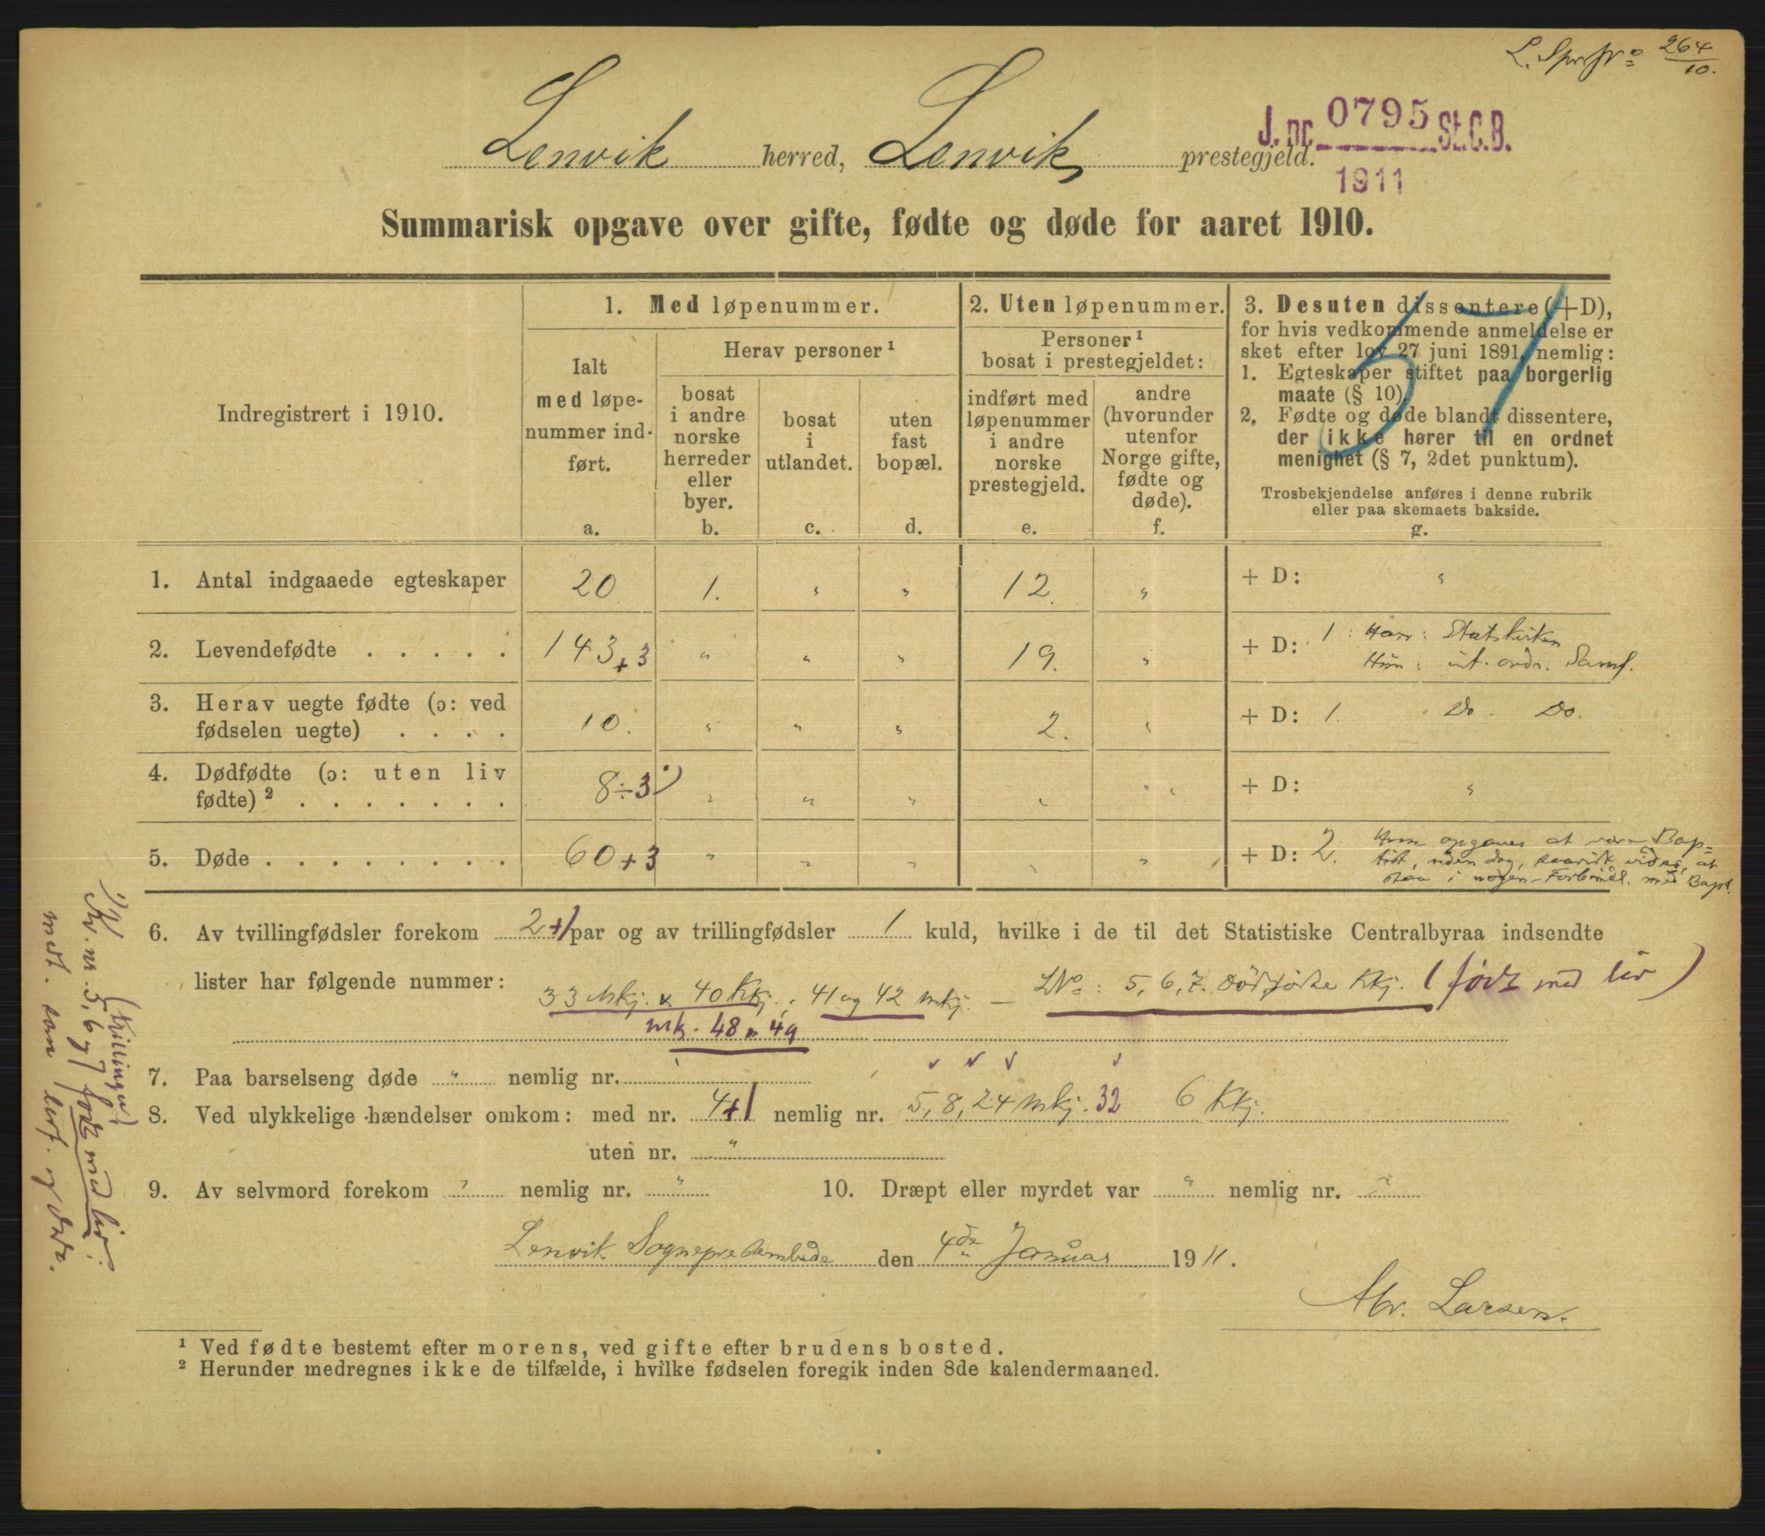 L. Spr Nº 264/10.
Lenvik herred, Lenvik prestegjeld.
J. nr. 0795 St.C.B.
1911
Summarisk opgave over gifte, fødte og døde for aaret 1910.
57
Indregistrert i 1910.
1. Med løpenummer.
Ialt
med løpe-
nummer ind-
ført.
a.
Herav personer ¹
bosat
i andre
norske
herreder
eller
byer.
b.
bosat
i
utlandet.
c.
uten
fast
bopæl.
d.
2. Uten løpenummer.
Personer ¹
bosat i prestegjeldet:
indført med
løpenummer
i andre
norske
prestegjeld.
e.
andre
(hvorunder
utenfor
Norge gifte,
fødte og
døde).
f.
3. Desuten dissentere (+D),
for hvis vedkommende anmeldelse er
sket efter lov 27 juni 1891, nemlig:
1. Egteskaper stiftet paa borgerlig
maate (§ 10).
2. Fødte og døde blandt dissentere,
der ikke hører til en ordnet
menighet (§ 7, 2det punktum).
Trosbekjendelse anføres i denne rubrik
eller paa skemaets bakside.
g.
1. Antal indgaaede egteskaper 20 1. " " 12 " + D: "
2. Levendefødte . . . . . 143 + 3 " " " 19. " + D: 1 : Han: Statskirken
Hun: int. ordn. Samf.
3. Herav uegte fødte (ɔ: ved
fødselen uegte) . . . . 10. " " " 2. " + D: 1. Do. Do.
4. Dødfødte (ɔ: uten liv
fødte) ² . . . . . . . 8 ÷ 3 ¹) " " " " " + D: "
5. Døde . . . . . . . . 60 + 3 " " " " " + D: 2. Hun opgaves at være Bap=
tist, uden dog, saavidt vides, at
staa i nogen Forbindl. med Bapt.
6. Av tvillingfødsler forekom 2+1 par og av trillingfødsler 1 kuld, hvilke i de til det Statistiske Centralbyraa indsendte
lister har følgende nummer: 33 Mkj. & 40 Kkj., 41 og 42 Mkj. — LNº: 5, 6, 7. Dødfødte Kkj. (født med liv)
mk. 48 & 49
7. Paa barselseng døde " nemlig nr.
8. Ved ulykkelige hændelser omkom: med nr. 4+1 nemlig nr. 5, 8, 24 Mkj. 32 6 Kkj.
uten nr. "
9. Av selvmord forekom " nemlig nr. " 10. Dræpt eller myrdet var " nemlig nr. "
Lenvik Sogneprestembede den 4de Januar 1911.
Abr. Larsen.
¹ Ved fødte bestemt efter morens, ved gifte efter brudens bosted.
² Herunder medregnes ikke de tilfælde, i hvilke fødselen foregik inden 8de kalendermaaned.
(trillinger)
¹) Kv. nr. 5, 6 og 7 født med liv:
medt. som levf. og døde.